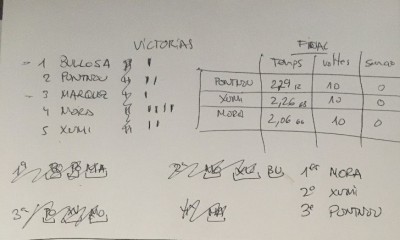 VICTORIAS
1 BULLOSA
2 PONTNOU
3 MARQUEZ
4 MORA
5 XUMI
FINAL
TEMPS VOLTES
PONTNOU 2,29 12 10 0
XUMI 2,26 10 0
MORA 2,06 10 0
1º MA
2º MO XU BU
3ª PO XU MO
MA
1er MORA
2º XUMI
3º PONTNOU